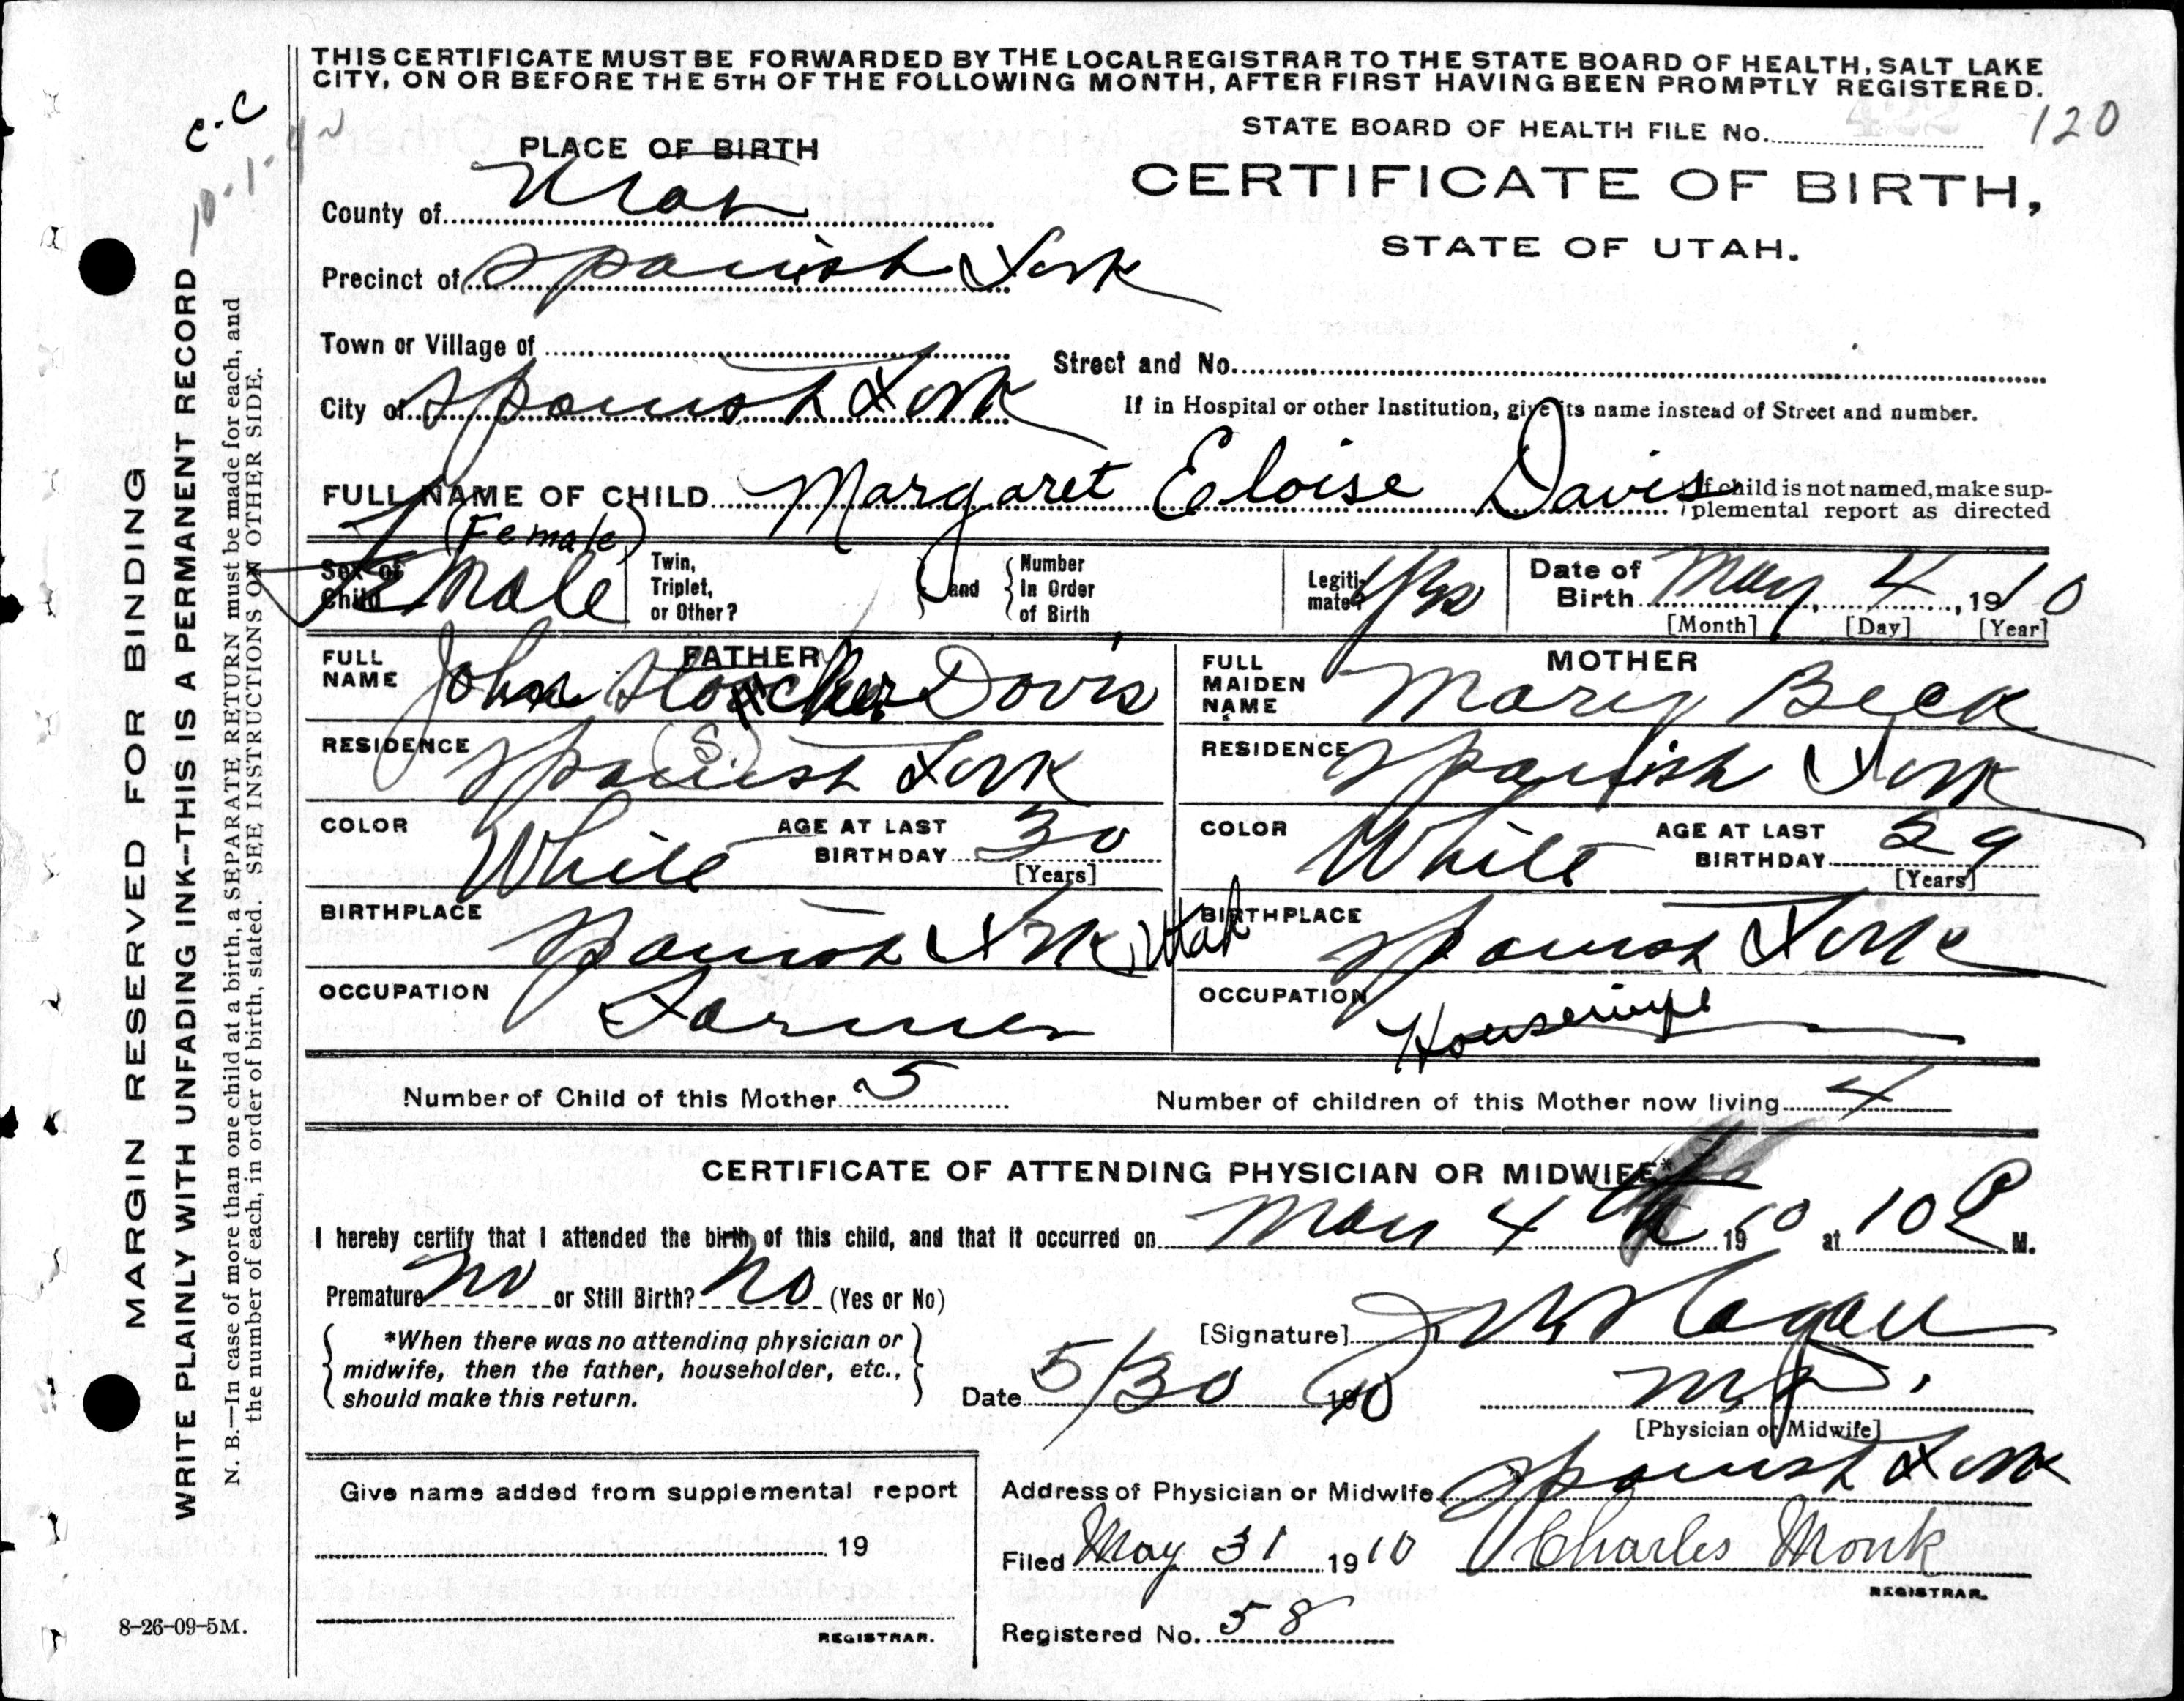 THIS CERTIFICATE MUST BE FORWARDED BY THE LOCALREGISTRAR TO THE STATE BOARD OF HEALTH, SALT LAKE
CITY, ON OR BEFORE THE 5TH OF THE FOLLOWING MONTH, AFTER FIRST HAVING BEEN PROMPTLY REGISTERED.
STATE BOARD OF HEALTH FILE No. 120
c.c
10.1.
PLACE OF BIRTH
CERTIFICATE OF BIRTH,
STATE OF UTAH.
County of Utah
Precinct of Spanish Fork
Town or Village of
Street and No.
City of Spanish Fork
If in Hospital or other Institution, give its name instead of Street and number.
FULL NAME OF CHILD Margaret Eloise Davis
If child is not named, make sup-
plemental report as directed
(Female)
Sex of Child Female
Twin, Triplet, or Other?
and
Number in Order of Birth
Legiti-mate? Yes
Date of Birth May 4, 1910
[Month] [Day] [Year]
FATHER
FULL NAME John Davis
(S)
RESIDENCE Spanish Fork
COLOR White
AGE AT LAST BIRTHDAY 30
[Years]
BIRTHPLACE Spanish Fork, Utah
OCCUPATION Farmer
MOTHER
FULL MAIDEN NAME Mary Beck
RESIDENCE Spanish Fork
COLOR White
AGE AT LAST BIRTHDAY 29
[Years]
BIRTHPLACE Spanish Fork
OCCUPATION Housewife
Number of Child of this Mother 5
Number of children of this Mother now living 4
CERTIFICATE OF ATTENDING PHYSICIAN OR MIDWIFE*
I hereby certify that I attended the birth of this child, and that it occurred on May 4 th 1910 at 10 P M.
Premature No or Still Birth? No (Yes or No)
*When there was no attending physician or
midwife, then the father, householder, etc.,
should make this return.
[Signature]
Date 5/30 1910
M.D.
[Physician or Midwife]
Give name added from supplemental report
19
REGISTRAR.
Address of Physician or Midwife Spanish Fork
Filed May 31 1910 Charles Monk
REGISTRAR.
Registered No. 58
8-26-09-5M.
MARGIN RESERVED FOR BINDING
WRITE PLAINLY WITH UNFADING INK--THIS IS A PERMANENT RECORD
N. B.—In case of more than one child at a birth, a SEPARATE RETURN must be made for each, and
the number of each, in order of birth, stated. SEE INSTRUCTIONS ON OTHER SIDE.